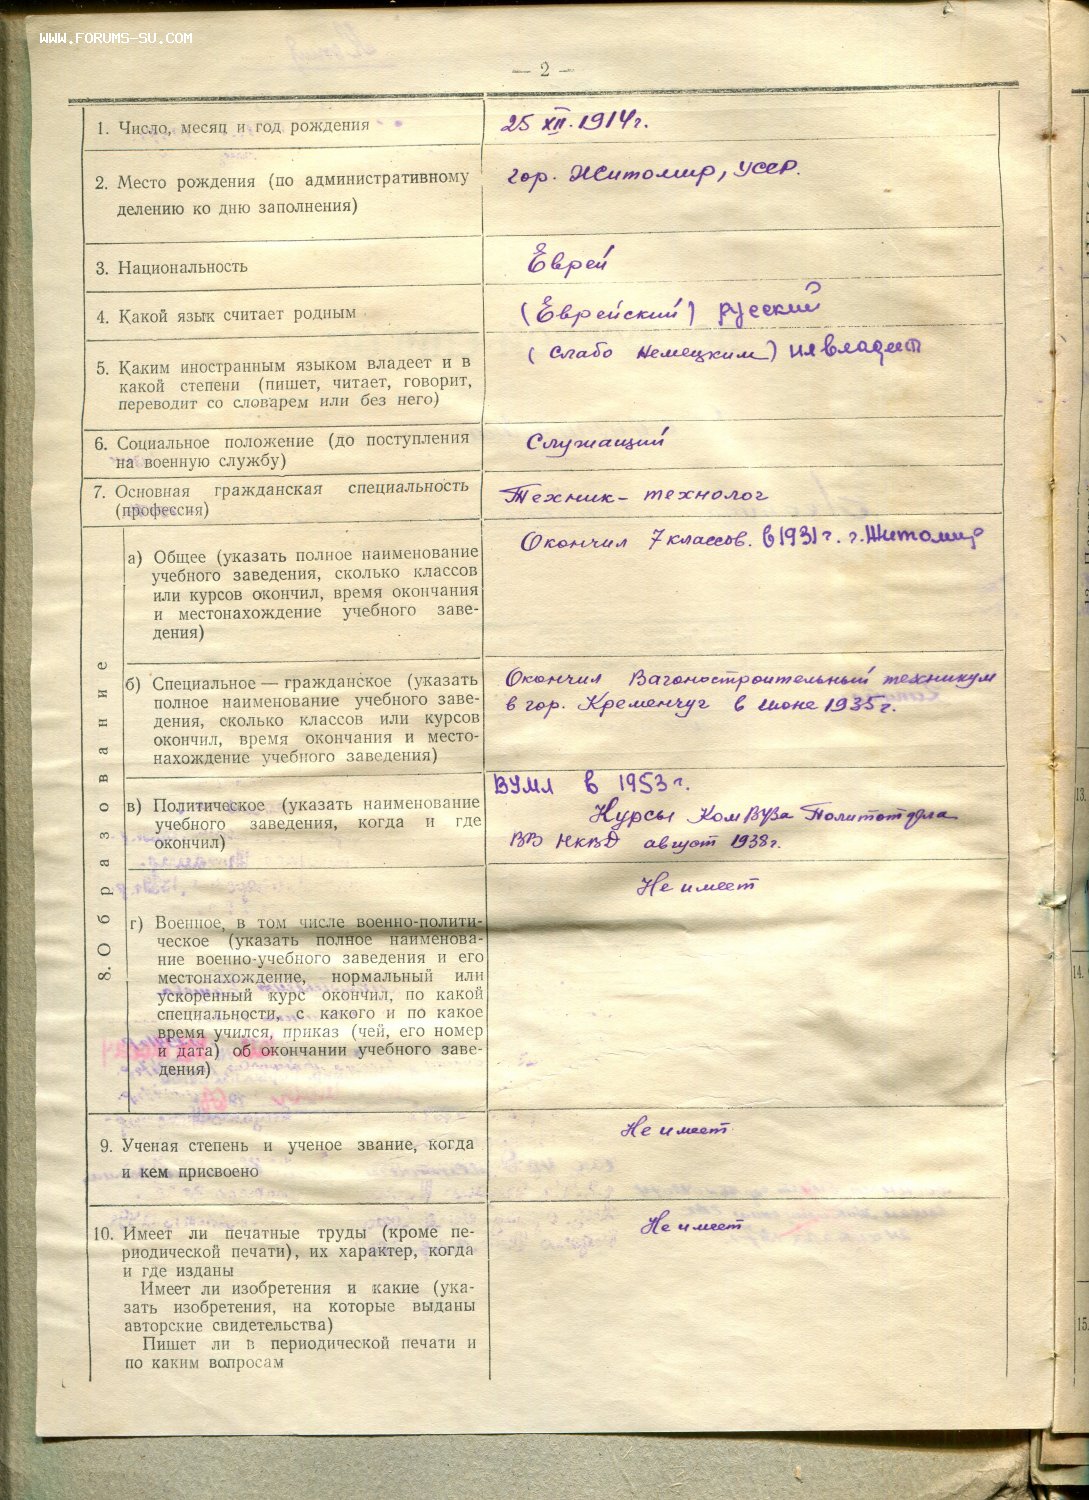 WWW.FORUMS-SU.COM
— 2 —
1. Число, месяц и год рождения
25 XII. 1914г.
2. Место рождения (по административному
делению ко дню заполнения)
гор. Житомир, УССР.
3. Национальность
Еврей
4. Какой язык считает родным
(Еврейский) русский
5. Каким иностранным языком владеет и в
какой степени (пишет, читает, говорит,
переводит со словарем или без него)
(слабо немецким) не владеет
6. Социальное положение (до поступления
на военную службу)
Служащий
7. Основная гражданская специальность
(профессия)
Техник - технолог
8. Образование
а) Общее (указать полное наименование
учебного заведения, сколько классов
или курсов окончил, время окончания
и местонахождение учебного заве-
дения)
Окончил 7 классов. в 1931г. г. Житомир
б) Специальное — гражданское (указать
полное наименование учебного заве-
дения, сколько классов или курсов
окончил, время окончания и место-
нахождение учебного заведения)
Окончил Вагоностроительный техникум
в гор. Кременчуг в июне 1935г.
в) Политическое (указать наименование
учебного заведения, когда и где
окончил)
ВУМЛ в 1953г.
Курсы КомВУЗа Политотдела
ВВ НКВД август 1938г.
г) Военное, в том числе военно-полити-
ческое (указать полное наименова-
ние военно-учебного заведения и его
местонахождение, нормальный или
ускоренный курс окончил, по какой
специальности, с какого и по какое
время учился, приказ (чей, его номер
и дата) об окончании учебного заве-
дения)
Не имеет
9. Ученая степень и ученое звание, когда
и кем присвоено
Не имеет
10. Имеет ли печатные труды (кроме пе-
риодической печати), их характер, когда
и где изданы
Имеет ли изобретения и какие (ука-
зать изобретения, на которые выданы
авторские свидетельства)
Пишет ли в периодической печати и
по каким вопросам
Не имеет
13.
14.
15.